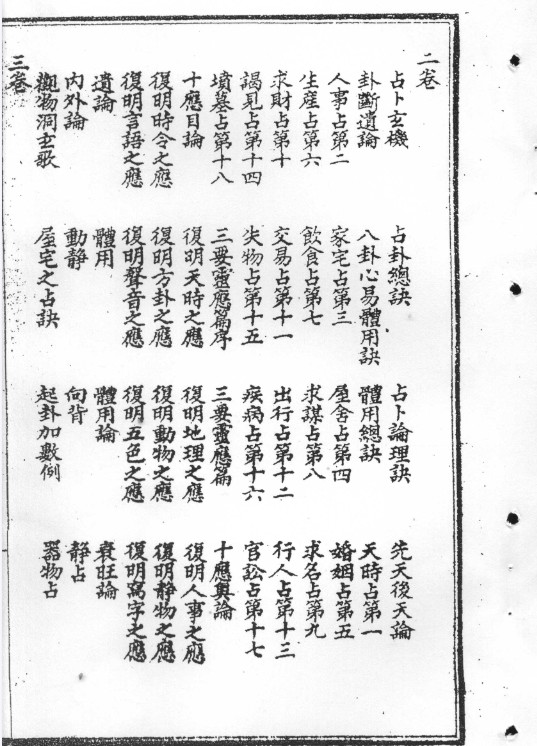 二卷
占卜玄機　占卦總訣　占卜論理訣　先天後天論
卦斷遺論　八卦心易體用訣　體用總訣　天時占第一
人事占第二　家宅占第三　屋舍占第四　婚姻占第五
生產占第六　飲食占第七　求謀占第八　求名占第九
求財占第十　交易占第十一　出行占第十二　行人占第十三
謁見占第十四　失物占第十五　疾病占第十六　官訟占第十七
墳墓占第十八　三要靈應篇序　三要靈應篇　十應奧論
十應目論　復明天時之應　復明地理之應　復明人事之應
復明時令之應　復明方卦之應　復明動物之應　復明静物之應
復明言語之應　復明聲音之應　復明五色之應　復明寫字之應
遺論　體用　體用論　衰旺論
內外論　動静　向背　静占
觀物洞玄歌　屋宅之占訣　起卦加數例　器物占
三卷